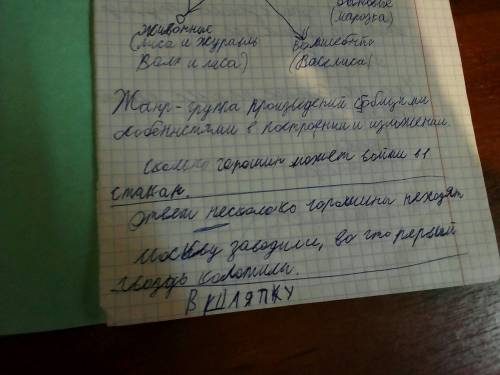 бытовые
(морозка)
животные
(Лиса и Журавль
Волк и лиса)
волшебные
(Василиса)
Жанр - группа произведений с общими
особенностями в построении и изложении.
Сколько горошин может войти в 1
стакан.
Ответ несколько горошины неходят
Москву заводили, во что первый
гвоздь колотили.
В ШЛЯПКУ